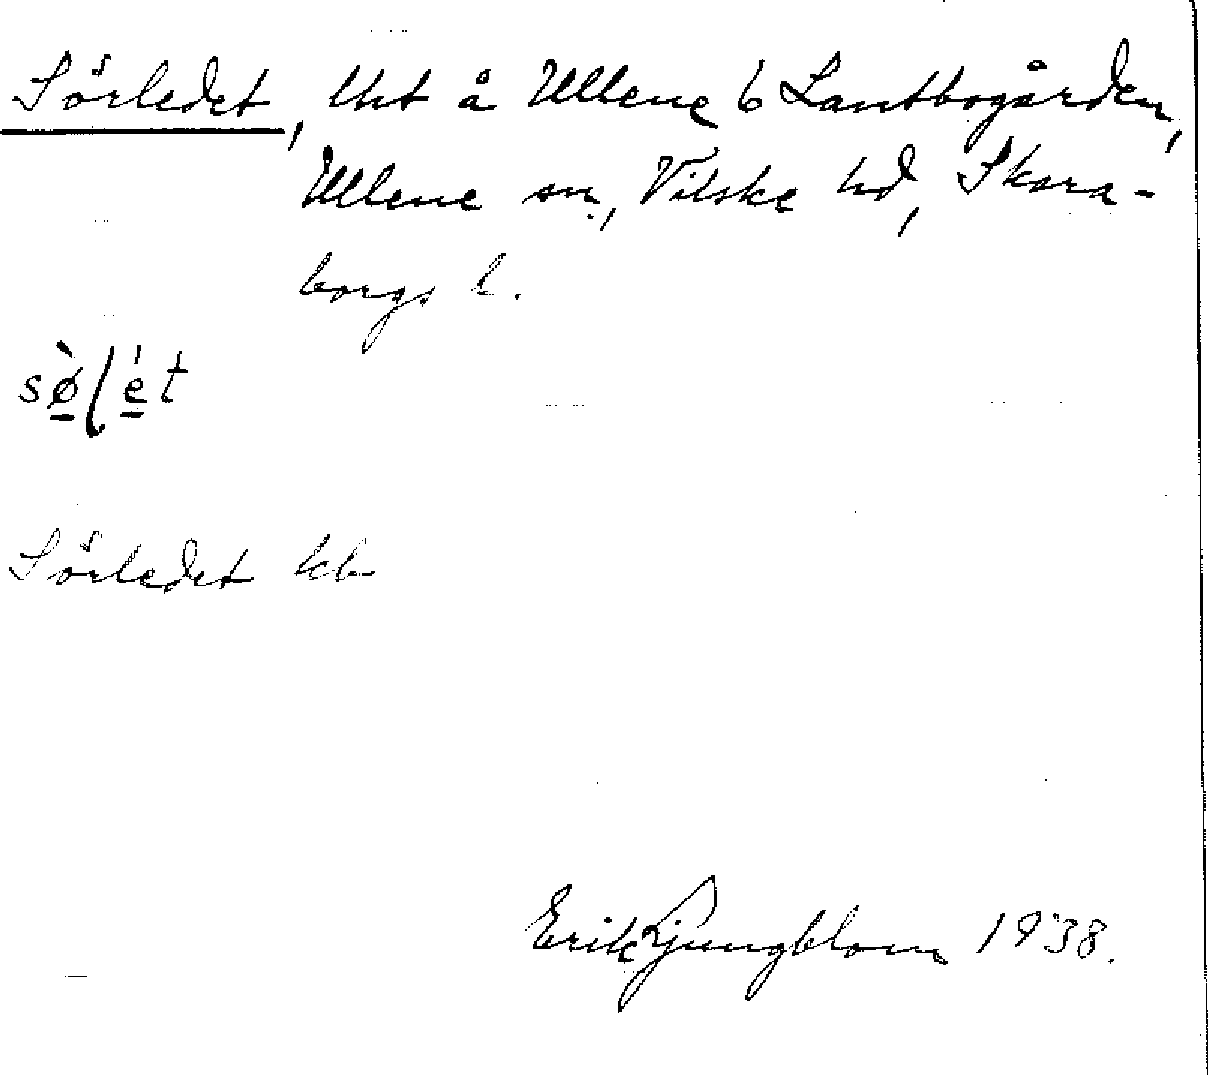 Sörledet, lht å Ullene 6 Lantbogården,
Ullene sn, Vilske hd, Skara-
borgs l.
sø̀lét
Sörledet kb
Erik Ljungblom 1938.